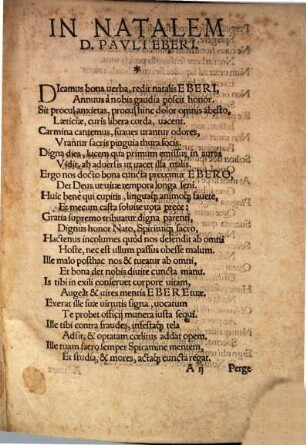 IN NATALEM
D. PAVLI EBERI.
*
Dicamus bona uerba, redit natalis EBERI,
Annuus à nobis gaudia poscit honor.
Sit procul anxietas, procul hinc dolor omnis abesto,
Lætitiæ, curis libera corda, uacent.
Carmina cantemus, suaues urantur odores,
Vrantur sacris pinguia thura focis.
Digna dies, lucem qua primùm emissus in auras
Vidit, ab aduersis ut uacet illa malis.
Ergo nos docto bona cuncta precemur EBERO,
Det Deus ut uitæ tempora longa seni.
Huic bene qui cupitis, linguisq; animoq; fauete,
Et mecum casta soluite uota prece:
Gratia supremo tribuatur digna parenti,
Dignus honor Nato, Spirituiq; sacro,
Hactenus incolumes quòd nos defendit ab omni
Hoste, nec est ullum passus obesse malum.
Ille malo posthac nos & tueatur ab omni,
Et bona det nobis diuite cuncta manu.
Is tibi in exili conseruet corpore uitam,
Augeat & uires mentis EBERE tuæ.
Exerat ille suæ uirtutis signa, uocatum
Te probet officij munera iusta sequi.
Ille tibi contra fraudes, infestaq; tela
Adsit, & optatam cœlitus addat opem.
Ille tuam sacro semper Spiramine mentem,
Et studia, & mores, actaq; cuncta regat.
A ij Perge